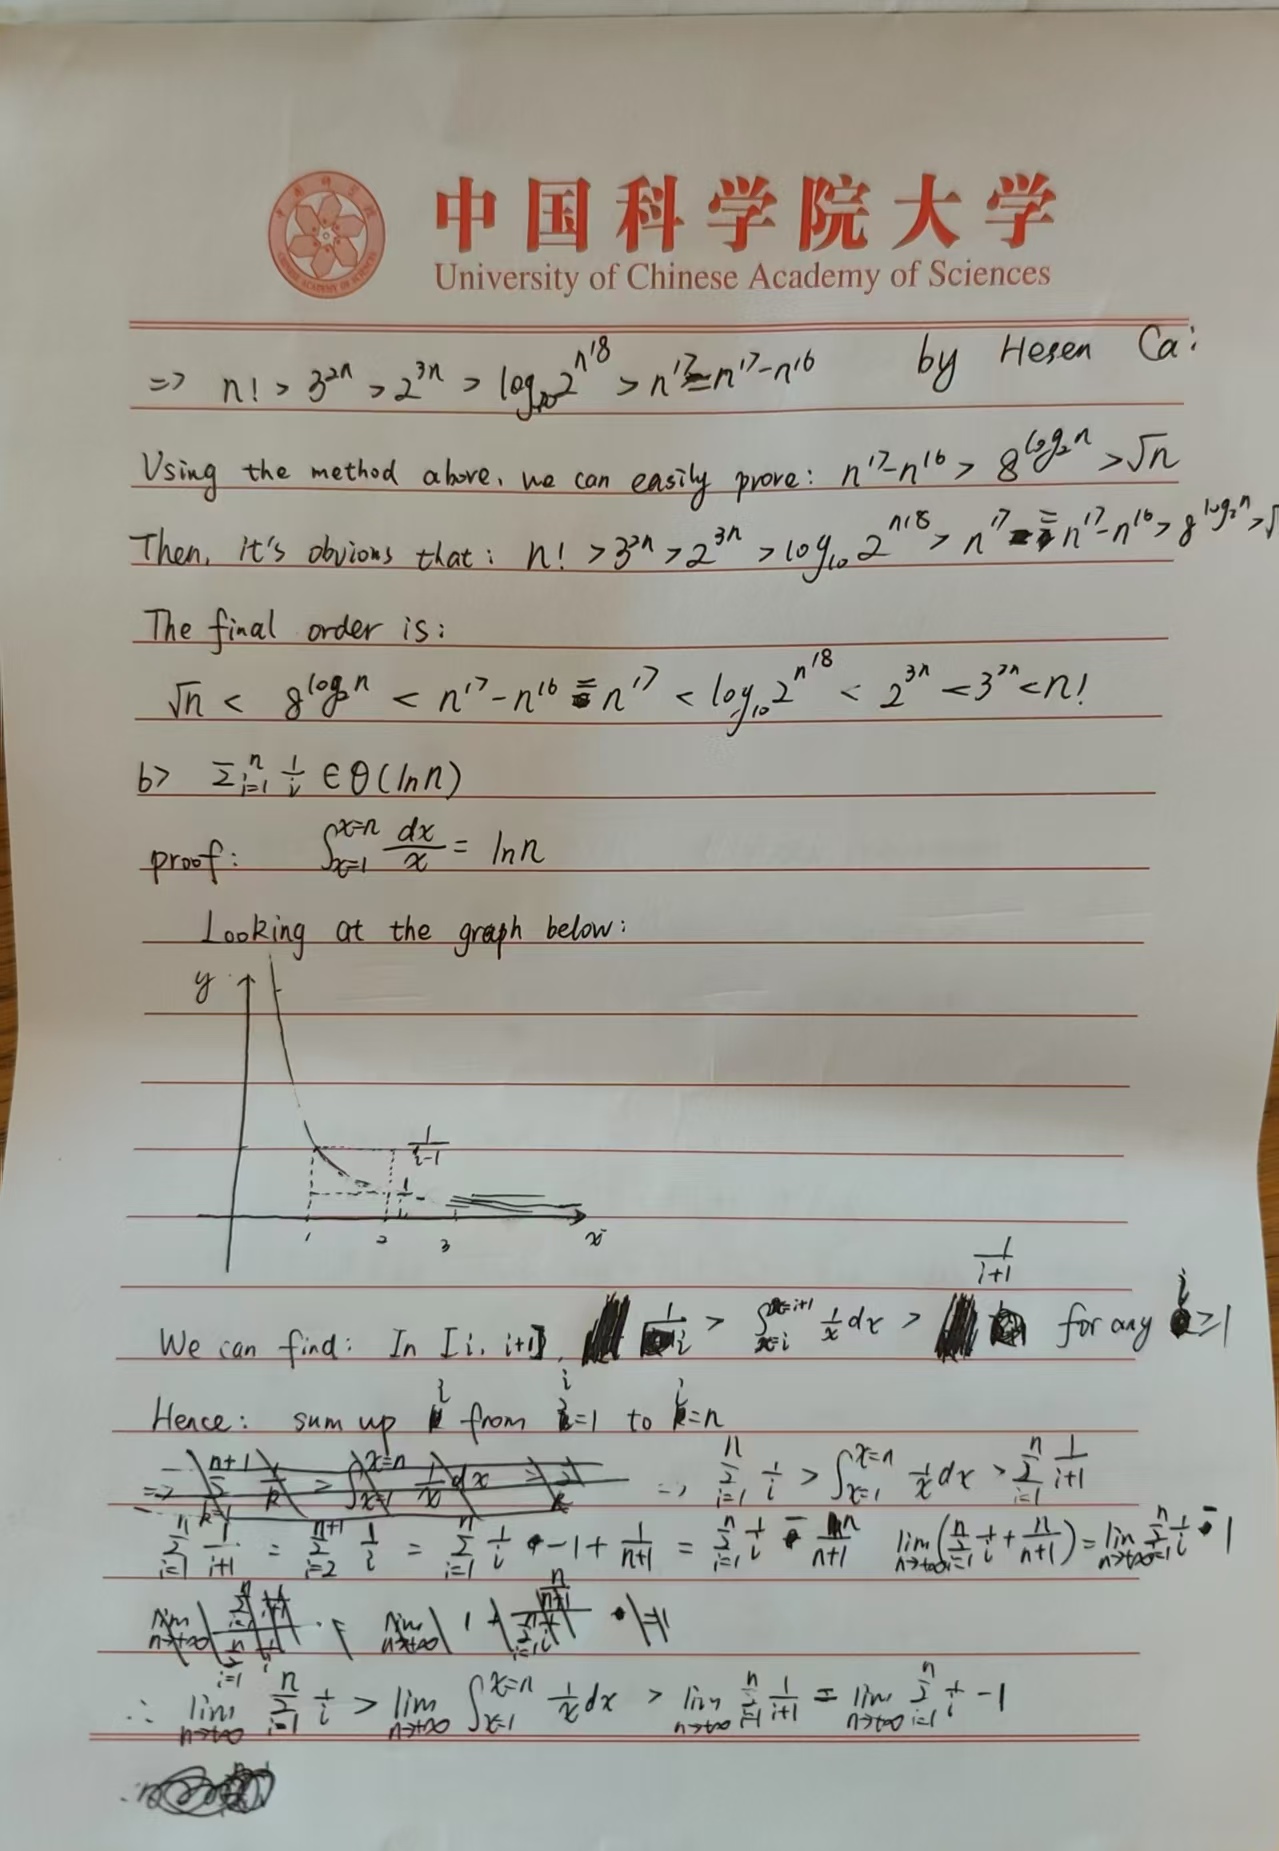 中国科学院大学
University of Chinese Academy of Sciences
=> n! > 3^{2n} > 2^{3n} > log_{10} 2^{n^{18}} > n^{17} = n^{17} - n^{16} by Hesen Ca:
Using the method above, we can easily prove: n^{17} - n^{16} > 8^{log_2 n} > √n
Then, it's obvious that: n! > 3^{2n} > 2^{3n} > log_{10} 2^{n^{18}} > n^{17} = n^{17} - n^{16} > 8^{log_2 n} > √
The final order is:
√n < 8^{log_2 n} < n^{17} - n^{16} = n^{17} < log_{10} 2^{n^{18}} < 2^{3n} < 3^{2n} < n!
b> Σ_{i=1}^{n} 1/i ∈ θ(ln n)
proof: ∫_{x=1}^{x=n} dx/x = ln n
Looking at the graph below:
y
1/(i-1)
1/i
1 2 3 x
We can find: In [i, i+1], 1/i > ∫_{x=i}^{x=i+1} 1/x dx > 1/(i+1) for any i ≥ 1
Hence: sum up i from i=1 to i=n
=> Σ_{i=1}^{n} 1/i > ∫_{x=1}^{x=n} 1/x dx > Σ_{i=1}^{n} 1/(i+1)
Σ_{i=1}^{n} 1/(i+1) = Σ_{i=2}^{n+1} 1/i = Σ_{i=1}^{n} 1/i - 1 + 1/(n+1) = Σ_{i=1}^{n} 1/i - n/(n+1) lim_{n→+∞} (Σ_{i=1}^{n} 1/i + n/(n+1)) = lim_{n→+∞} Σ_{i=1}^{n} 1/i - 1
∴ lim_{n→+∞} Σ_{i=1}^{n} 1/i > lim_{n→+∞} ∫_{x=1}^{x=n} 1/x dx > lim_{n→+∞} Σ_{i=1}^{n} 1/(i+1) = lim_{n→+∞} Σ_{i=1}^{n} 1/i - 1